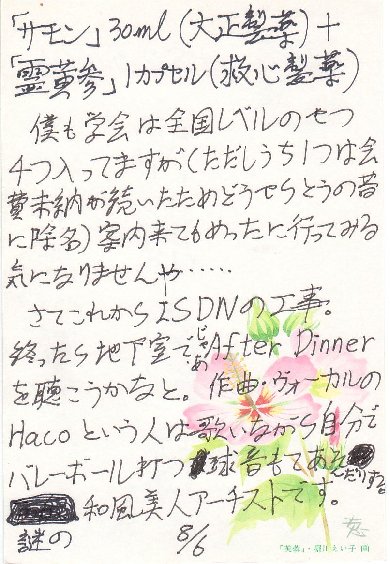 「サモン」30ml(大正製薬)+
「霊黄參」1カプセル(救心製薬)
僕も学会は全国レベルのやつ
4つ入ってますが(ただしうち1つは会
費未納が続いたためどうやらとうの昔
に除名)案内来てもめったに行ってみる
気になりませんや……
さてこれからISDNの工事。
終ったら地下室でじゃあAfter Dinner
を聴こうかなと。作曲・ヴォーカルの
Hacoという人は歌いながら自分で
バレーボール打つ球音もてあそんだりする。
和風美人アーチストです。
謎の
8/6
「芙蓉」・堀江えい子 画